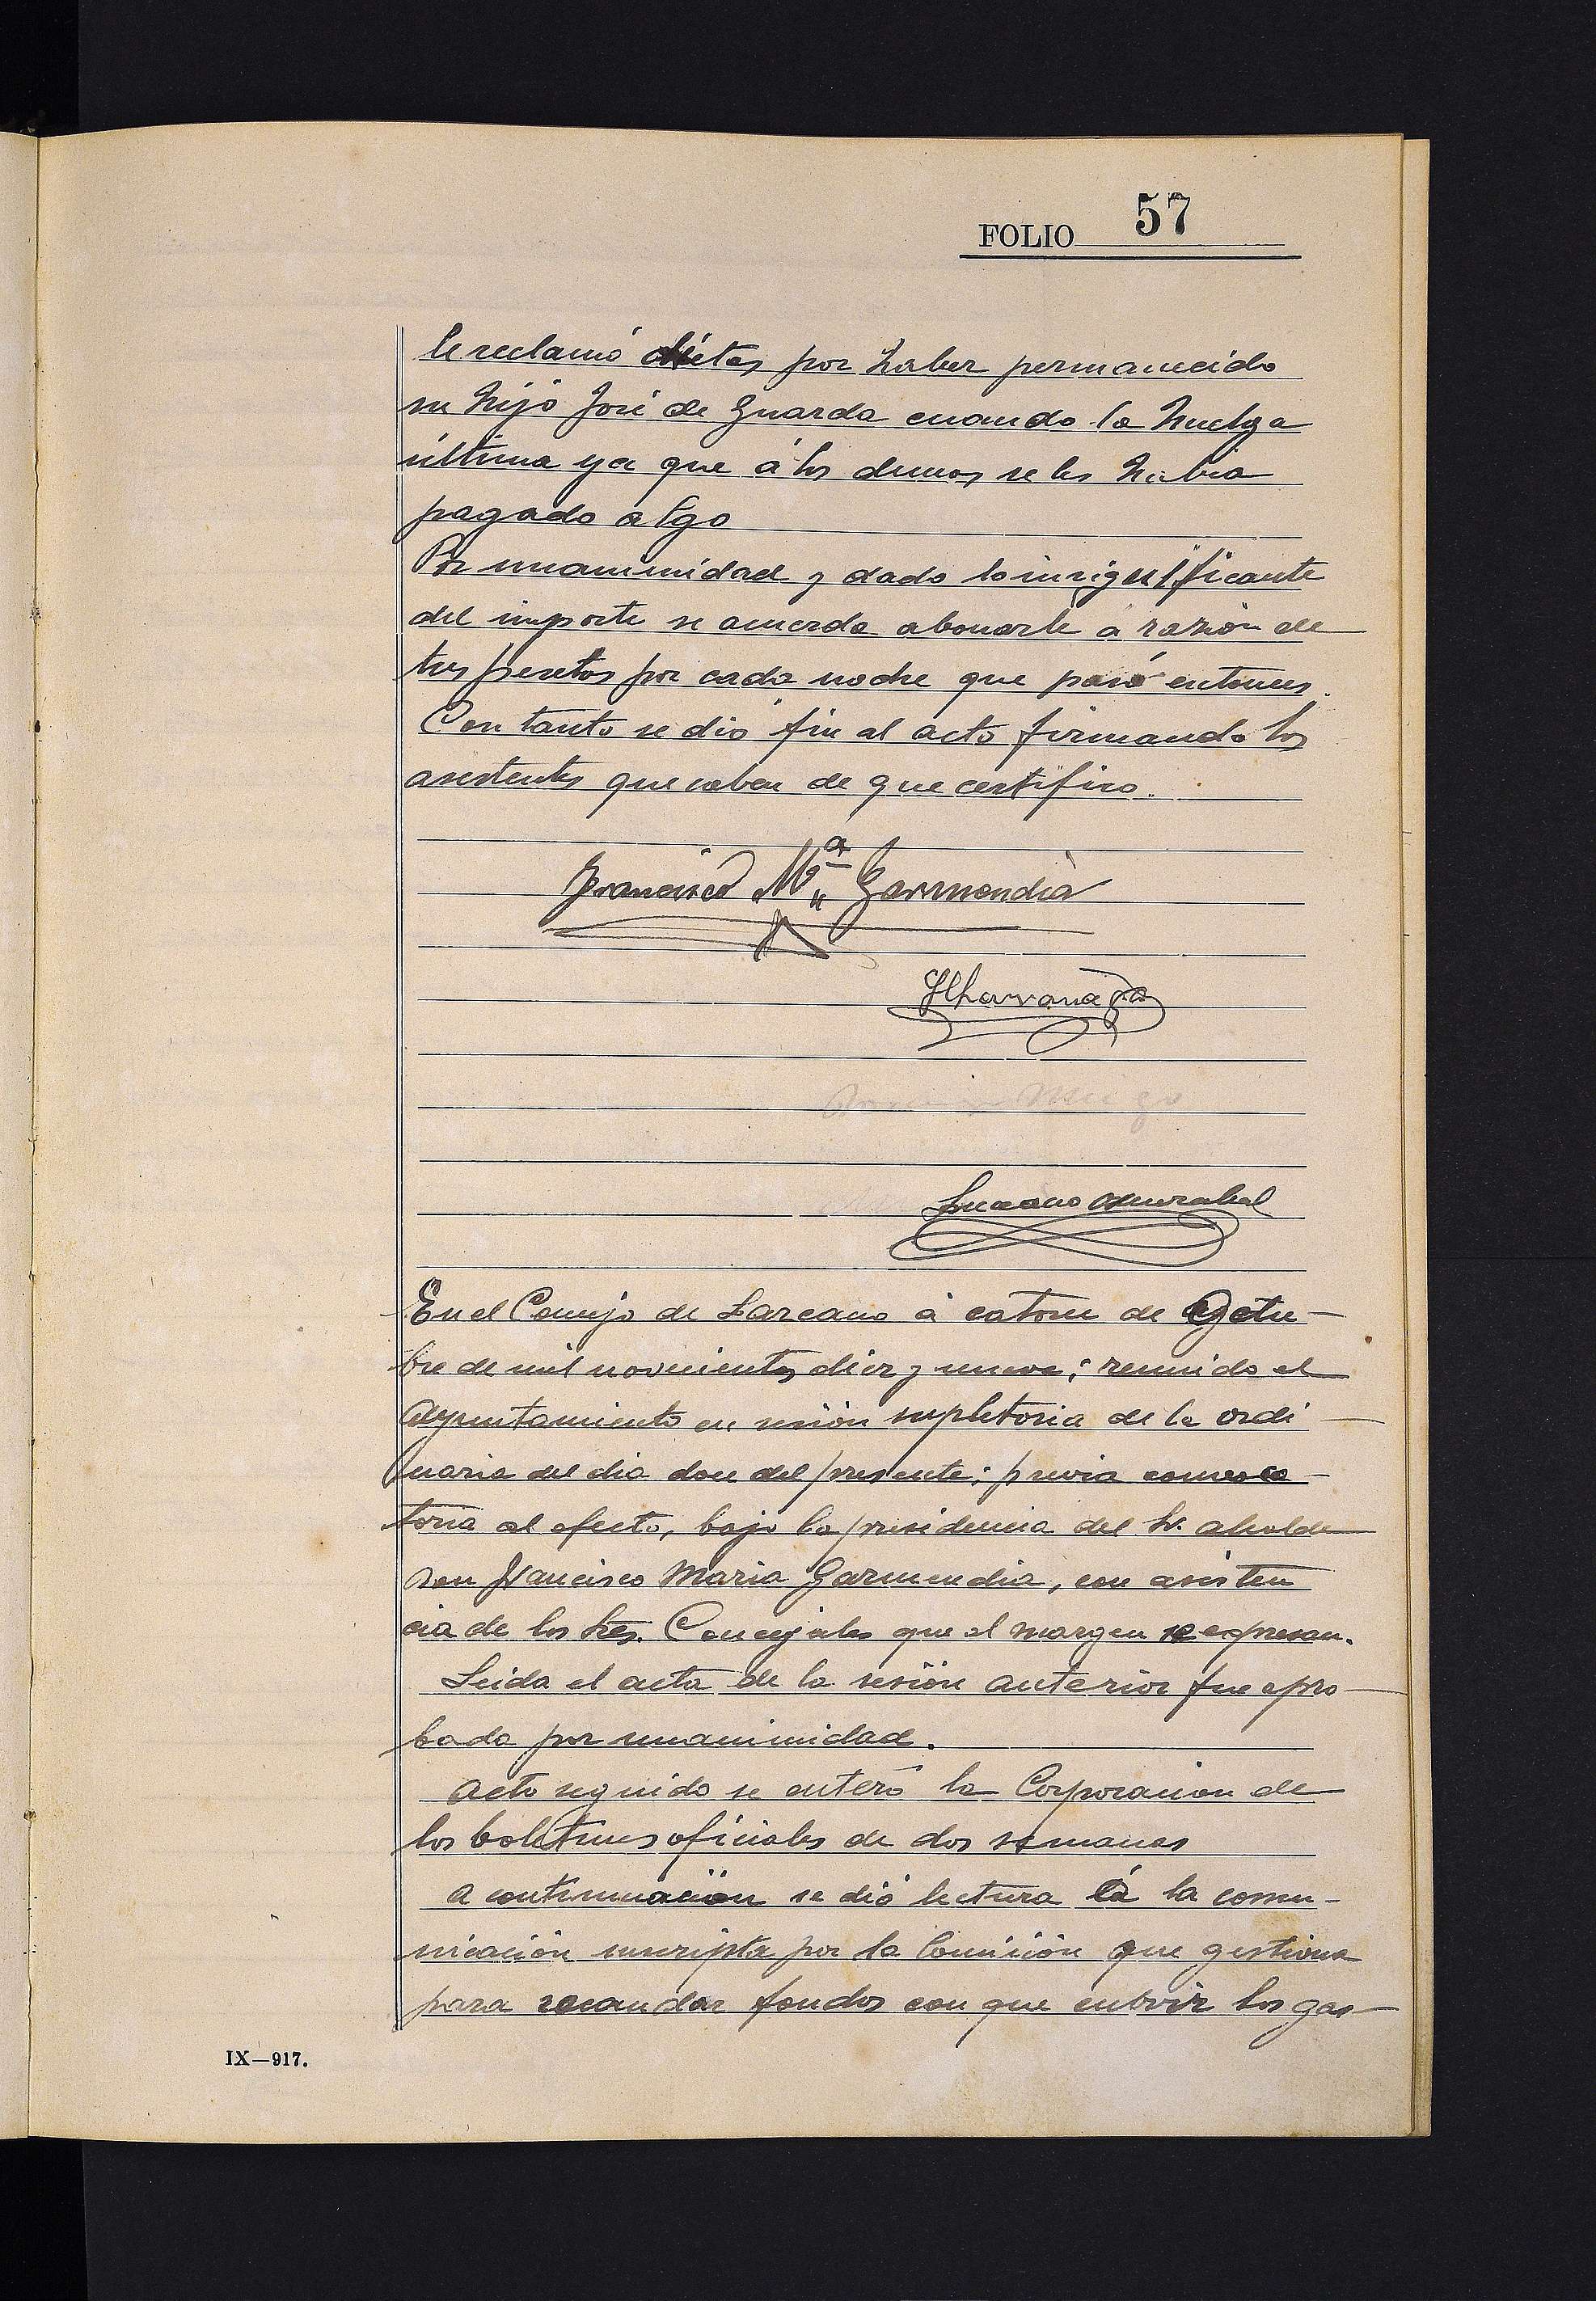 FOLIO 57
le reclamó dietas por haber permanecido
su hijo José de guarda cuando la huelga
última ya que á los demas se les habia
pagado algo
Por unanimidad y dado lo insignificante
del importe se acuerda abonarle á razón de
tres pesetas por cada noche que pasó entonces.
Con tanto se dió fin al acto firmando los
asistentes que saben de que certifico.
Francisco Mª Garmendia
Luciano
En el Concejo de Lazcano á catorce de Octu-
bre de mil novecientos diez y nueve; reunido el
Ayuntamiento en sesión supletoria de la ordi
naria del dia doce del presente; previa convoca-
toria al efecto, bajo la presidencia del Sr. alcalde
Don Francisco Maria Garmendia, con asisten
cia de los Sres. Concejales que al margen se expresan.
Leida el acta de la sesión anterior fue apro-
bada por unanimidad.
Acto seguido se enteró la Corporacion de
los boletines oficiales de dos semanas
A continuación se dió lectura á la comu-
nicación suscripta por la Comisión que gestiona
para recaudar fondos con que cubrir los gas-
IX—917.